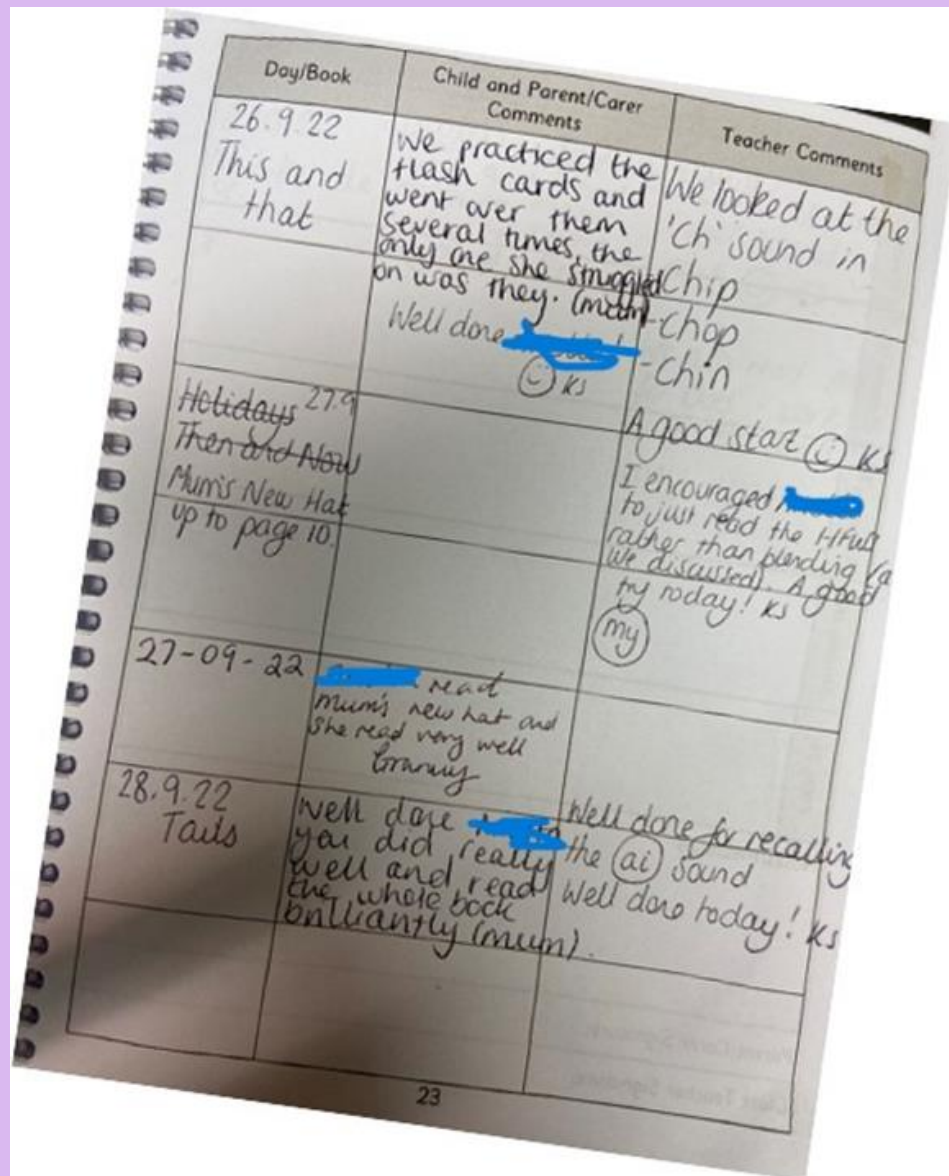 Day/Book
Child and Parent/Carer
Comments
Teacher Comments
26.9.22
This and
that
We practiced the
flash cards and
went over them
several times, the
only one she struggled
on was they. (mum)
Well done
KS
We looked at the
'Ch' sound in
-Chip
-Chop
-Chin
A good start KS
Holidays 27.9
Then and Now
Mum's New Hat
up to page 10.
I encouraged
to just read the
rather than blending (a
we discussed). A good
try today! KS
my
27-09-22
read
mum's new hat and
she read very well
Granny
28.9.22
Tails
Well done
you did really
well and read
the whole book
brilliantly (mum).
Well done for recalling
the ai sound
Well done today! KS
23